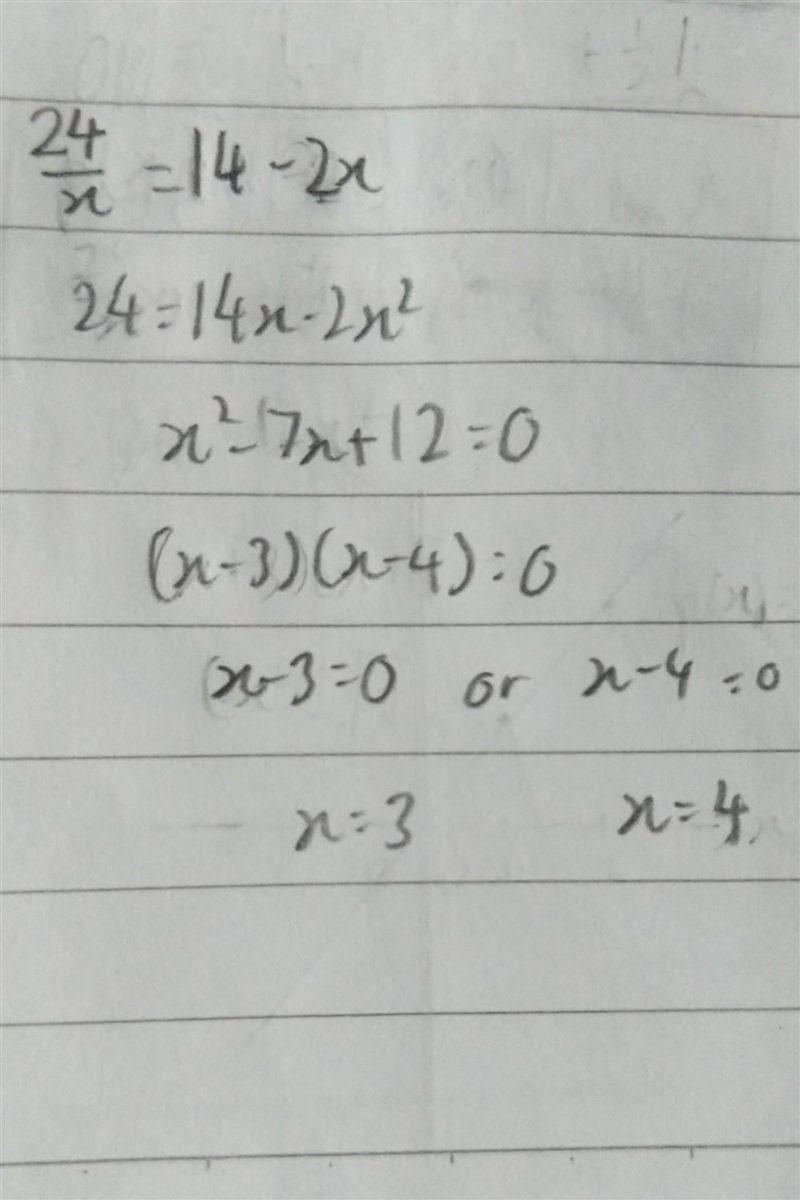 24/x = 14 - 2x
24 = 14x - 2x²
x² - 7x + 12 = 0
(x - 3)(x - 4) = 0
x - 3 = 0 or x - 4 = 0
x = 3 x = 4